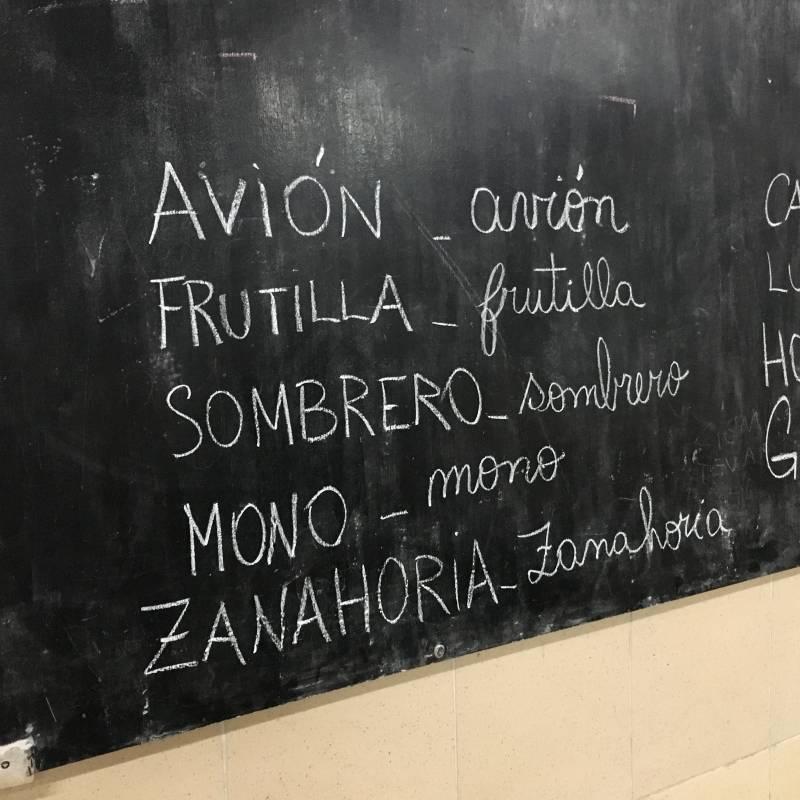 AVIÓN - avión
FRUTILLA - frutilla
SOMBRERO - sombrero
MONO - mono
ZANAHORÍA - Zanahoría